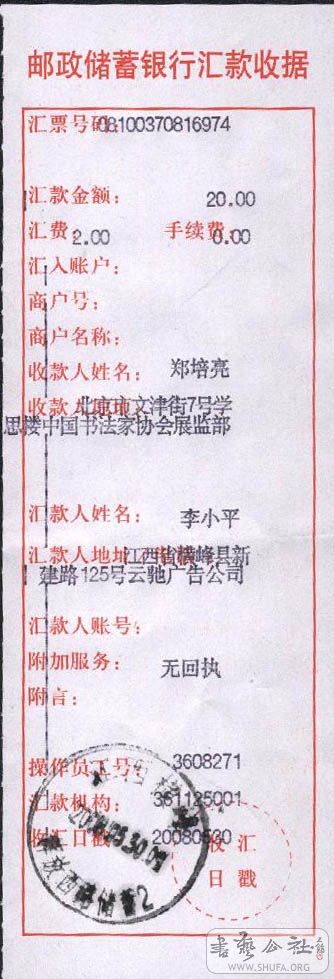 邮政储蓄银行汇款收据
汇票号码:08100370816974
汇款金额: 20.00
汇费:2.00 手续费:0.00
汇入账户:
商户号:
商户名称:
收款人姓名: 郑培亮
收款人地址:北京市文津街7号学
思楼中国书法家协会展监部
汇款人姓名: 李小平
汇款人地址 江西省横峰县新
建路125号云驰广告公司
汇款人账号:
附加服务: 无回执
附言:
操作员工号: 3608271
汇款机构: 361125001
收汇日戳: 20080530
收汇
日戳
書藝公社
WWW.SHUFA.ORG